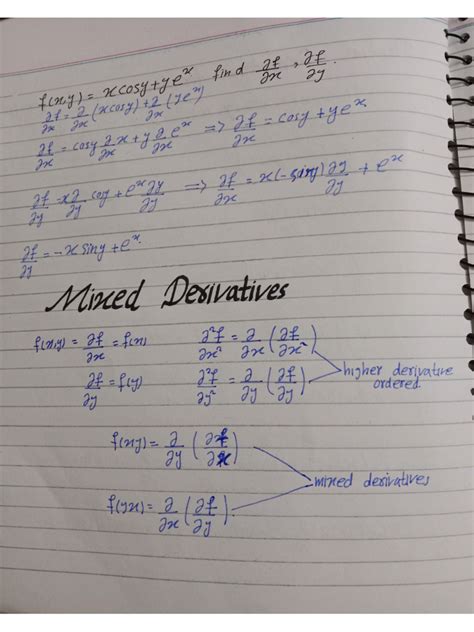 f(x,y) = x cosy + y eˣ find ∂f/∂x , ∂f/∂y.
∂f/∂x = ∂/∂x (x cosy) + ∂/∂x (y eˣ)
∂f/∂x = cosy ∂/∂x x + y ∂/∂x eˣ => ∂f/∂x = cosy + y eˣ
∂f/∂y = x ∂/∂y cosy + eˣ ∂y/∂y => ∂f/∂x = x(-siny) ∂y/∂y + eˣ
∂f/∂y = -x siny + eˣ.
Mixed Derivatives
f(x,y) = ∂f/∂x = f(x) ∂²f/∂x² = ∂/∂x (∂f/∂x²)
higher derivative
ordered.
∂f/∂y = f(y) ∂²f/∂y² = ∂/∂y (∂f/∂y)
f(xy) = ∂/∂y (∂f/∂x)
mixed derivatives
f(yx) = ∂/∂x (∂f/∂y).